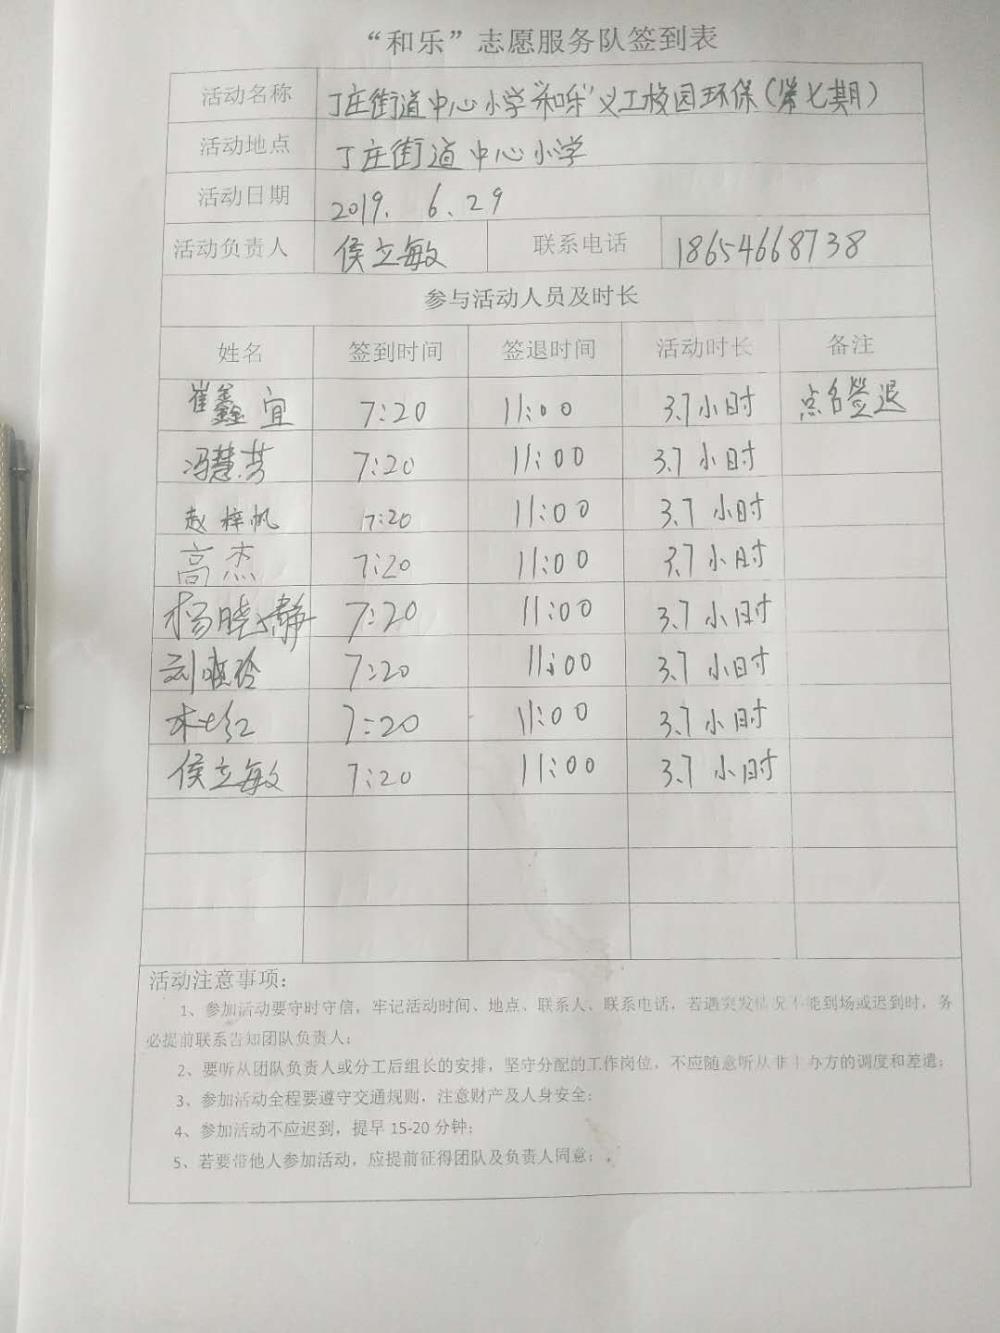 “和乐”志愿服务队签到表
活动名称 丁庄街道中心小学“和乐”义工校园环保(第七期)
活动地点 丁庄街道中心小学
活动日期 2019. 6. 29
活动负责人 侯立敏 联系电话 18654668738
参与活动人员及时长
姓名 签到时间 签退时间 活动时长 备注
崔鑫宜 7:20 11:00 3.7小时 点名签退
冯慧芳 7:20 11:00 3.7小时
赵梓帆 7:20 11:00 3.7小时
高杰 7:20 11:00 3.7小时
杨晓静 7:20 11:00 3.7小时
刘晓玲 7:20 11:00 3.7小时
7:20 11:00 3.7小时
侯立敏 7:20 11:00 3.7小时
活动注意事项:
1、参加活动要守时守信，牢记活动时间、地点、联系人、联系电话，若遇突发情况不能到场或迟到时，务
必提前联系告知团队负责人;
2、要听从团队负责人或分工后组长的安排，坚守分配的工作岗位，不应随意听从非主办方的调度和差遣;
3、参加活动全程要遵守交通规则，注意财产及人身安全;
4、参加活动不应迟到，提早 15-20 分钟;
5、若要带他人参加活动，应提前征得团队及负责人同意;